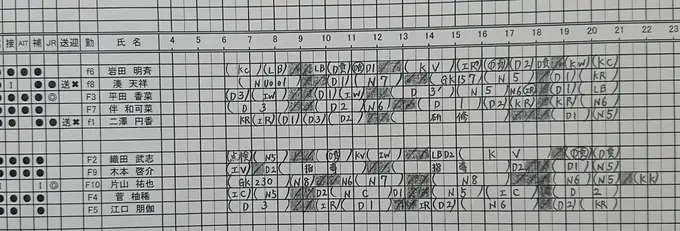 接 AIT 補 JR 送迎 勤 氏名 4 5 6 7 8 9 10 11 12 13 14 15 16 17 18 19 20 21 22 23
f6 岩田 明斉 (KC)(LB) LB(D責) D1)(KV)(IR)(D2)D責(KW)(KC)
送✖ f8 湊 天祥 (NU001)(D1)(N7)(GK157)(N5)(D1)(KR)
◎ F3 平田 香菜 (D3)(IW)(D1)(IW)(D3')(N5 N6(IR)(D1)(
F7 伴 和可菜 (D3)(D2)(N6)(D1)(D2)(KR)(KR)(N6)
送✖ f1 二澤 円香 KR(IR)(D1)(D3)(D2 (研修)(D1)(N5)
F2 織田 武志 (点検)(N5)(D責)KV(IW)LBD2(KV)(D責)(D責)
F9 木本 啓介 (IV)(D2(指導)(指導)(D2)(D1)(N5)
I I ◎ F10 片山 祐也 (GK230)(N8)(N6)(N7)(N8)(N6)(N5)(KK)
F4 菅 柚稀 (IC)(N5)(D2(NC)D1)(N5)(IC)(D2)
F5 江口 朋伽 (D3)(IR)(D1)(IR(D2)(N6)(D2)(KR)